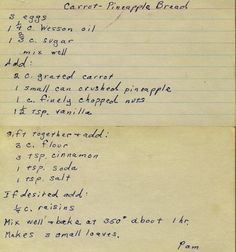 Carrot-Pineapple Bread
3 eggs
1 ¼ c. Wesson oil
1 ⅓ c. sugar
mix well
Add:
2 c. grated carrot
1 small can crushed pineapple
1 c. finely chopped nuts
1 ½ tsp. vanilla
Sift together + add:
3 c. flour
3 tsp. cinnamon
1 tsp. soda
1 tsp. salt
If desired add:
½ c. raisins
Mix well + bake at 350° about 1 hr.
Makes 3 small loaves.
Pam